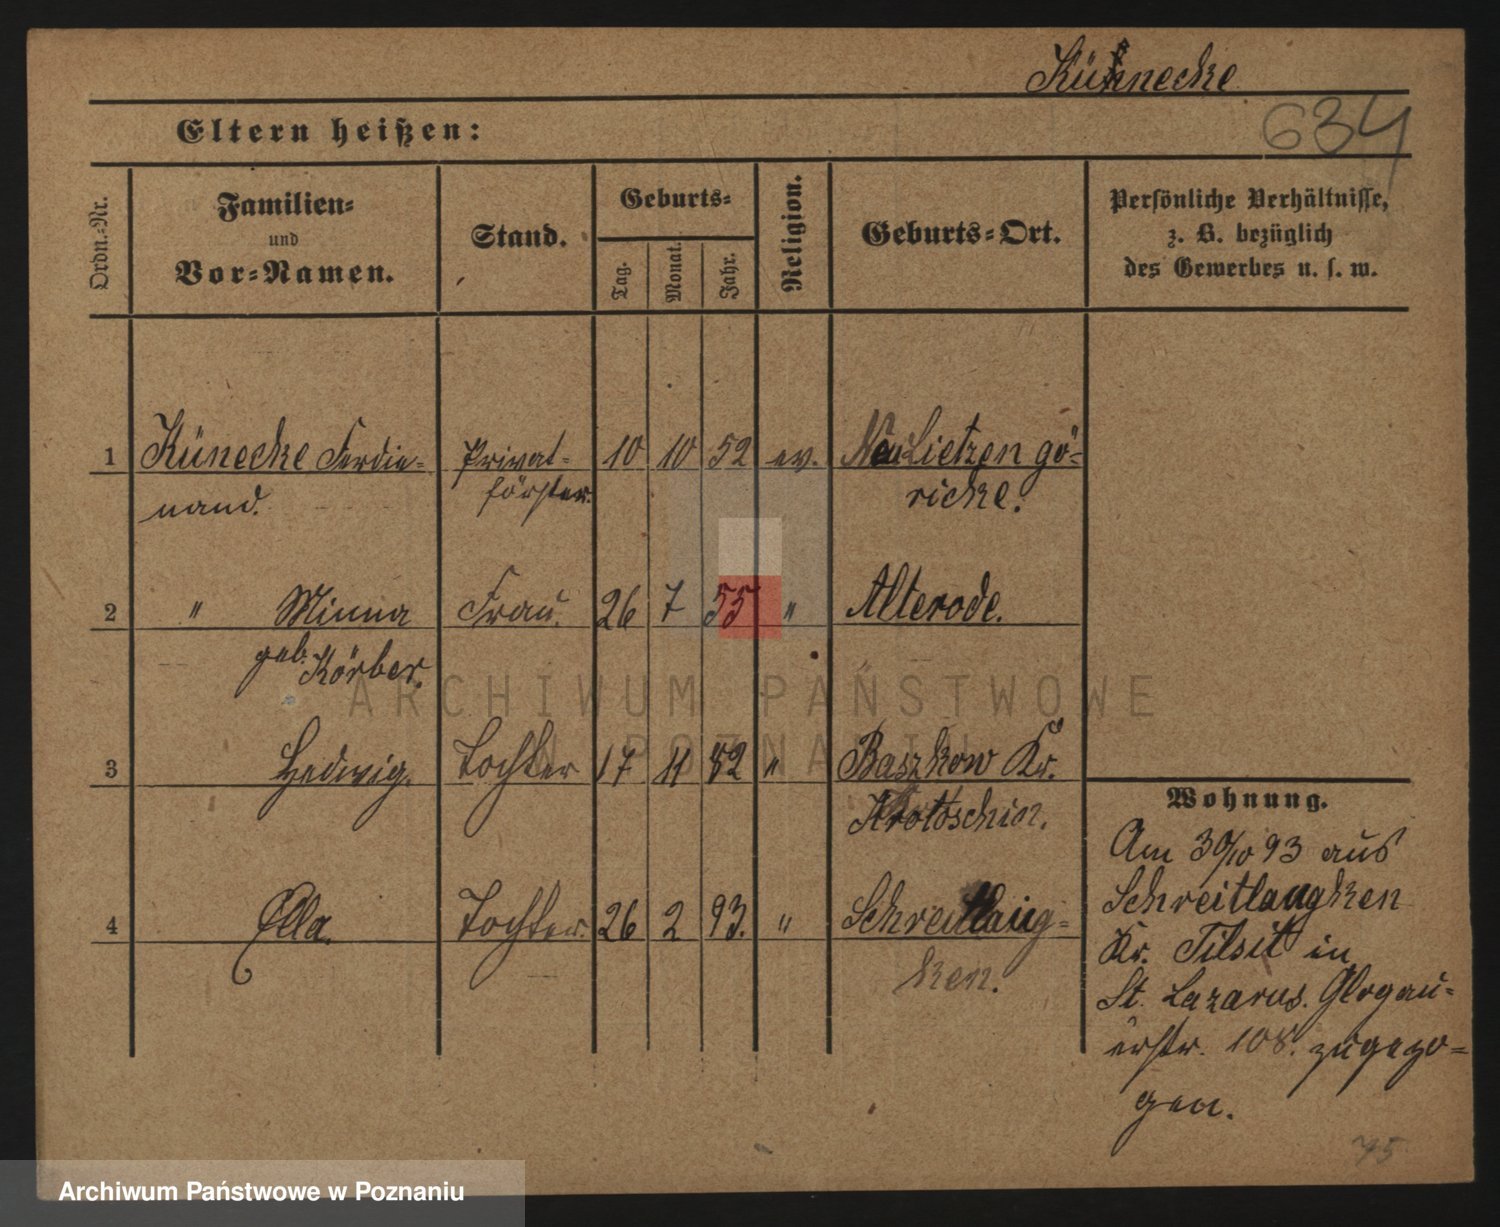 Künecke
634
Eltern heißen:
Ordn.-Nr.
Familien-
und
Vor-Namen.
Stand.
Geburts-
Tag.
Monat.
Jahr.
Religion.
Geburts-Ort.
Persönliche Verhältnisse,
z. B. bezüglich
des Gewerbes u. s. w.
1 Künecke Ferdie- Privat- 10 10 52 ev. Neu Lietzen gö-
nand. förster. ricke.
2 " Minna Frau. 26 7 55 " Alterode.
geb. Körber.
ARCHIWUM PAŃSTWOWE
W POZNANIU
3 Hedwig. Tochter 17 11 82 " Baszkow Kr.
Krotoschin.
4 Ella. Tochter. 26 2 93. " Schreitlaug-
ken.
Wohnung.
Am 30/10 93 aus
Schreitlaugken
Kr. Tilsit in
St. Lazarus. Glogau-
erstr. 108. zugezo-
gen.
75
Archiwum Państwowe w Poznaniu